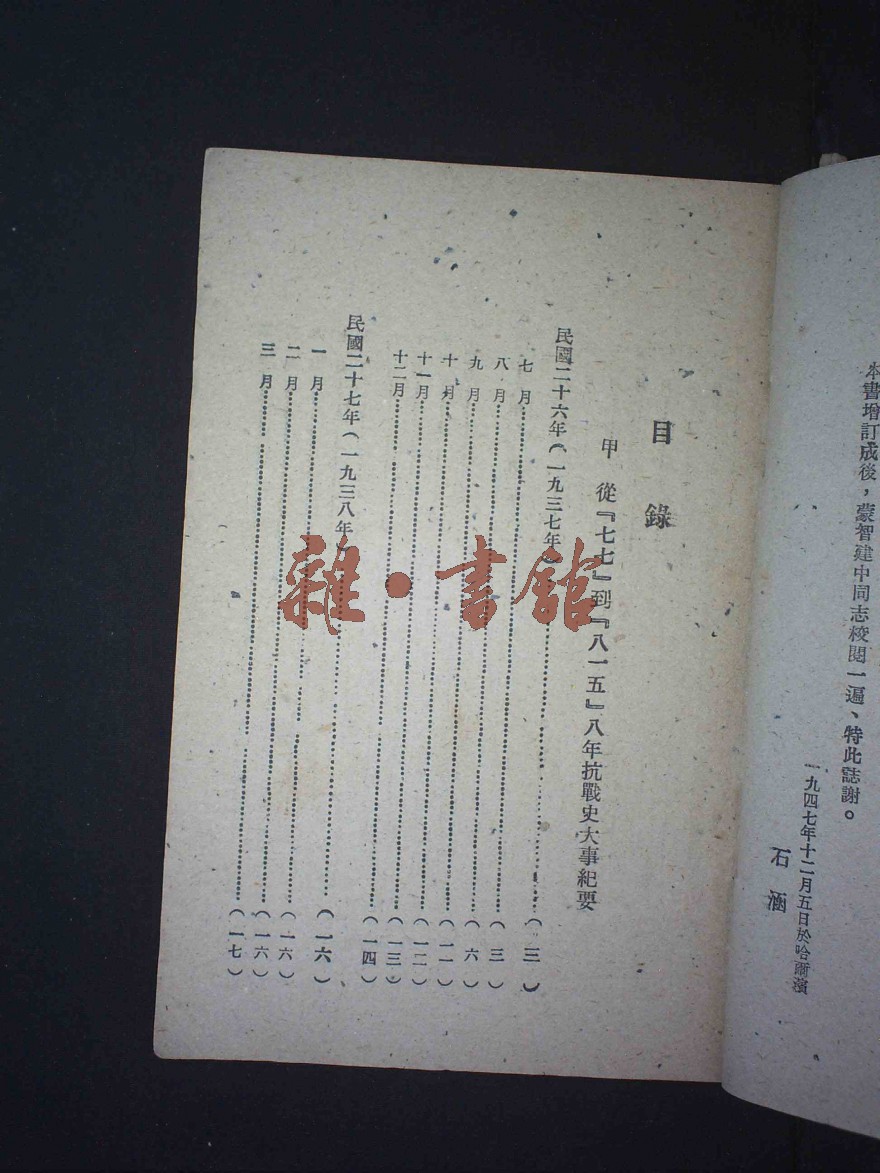 本書增訂成後，蒙智建中同志校閱一遍、特此誌謝。
一九四七年十二月五日於哈爾濱
石涵
目錄
甲 從『七七』到『八一五』八年抗戰史大事紀要
民國二十六年（一九三七年）……（三）
七月……（三）
八月……（六）
九月……（一一）
十月……（一二）
十一月……（一三）
十二月……（一四）
民國二十七年（一九三八年）……（一六）
一月……（一六）
二月……（一六）
三月……（一七）
雜·書館